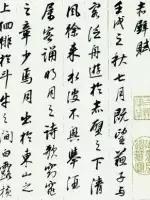 赤壁賦
壬戌之秋七月既望蘇子與
客泛舟遊於赤壁之下清
風徐來水波不興舉酒
屬客誦明月之詩歌窈窕
之章少焉月出於東山之
上徘徊於斗牛之間白露橫